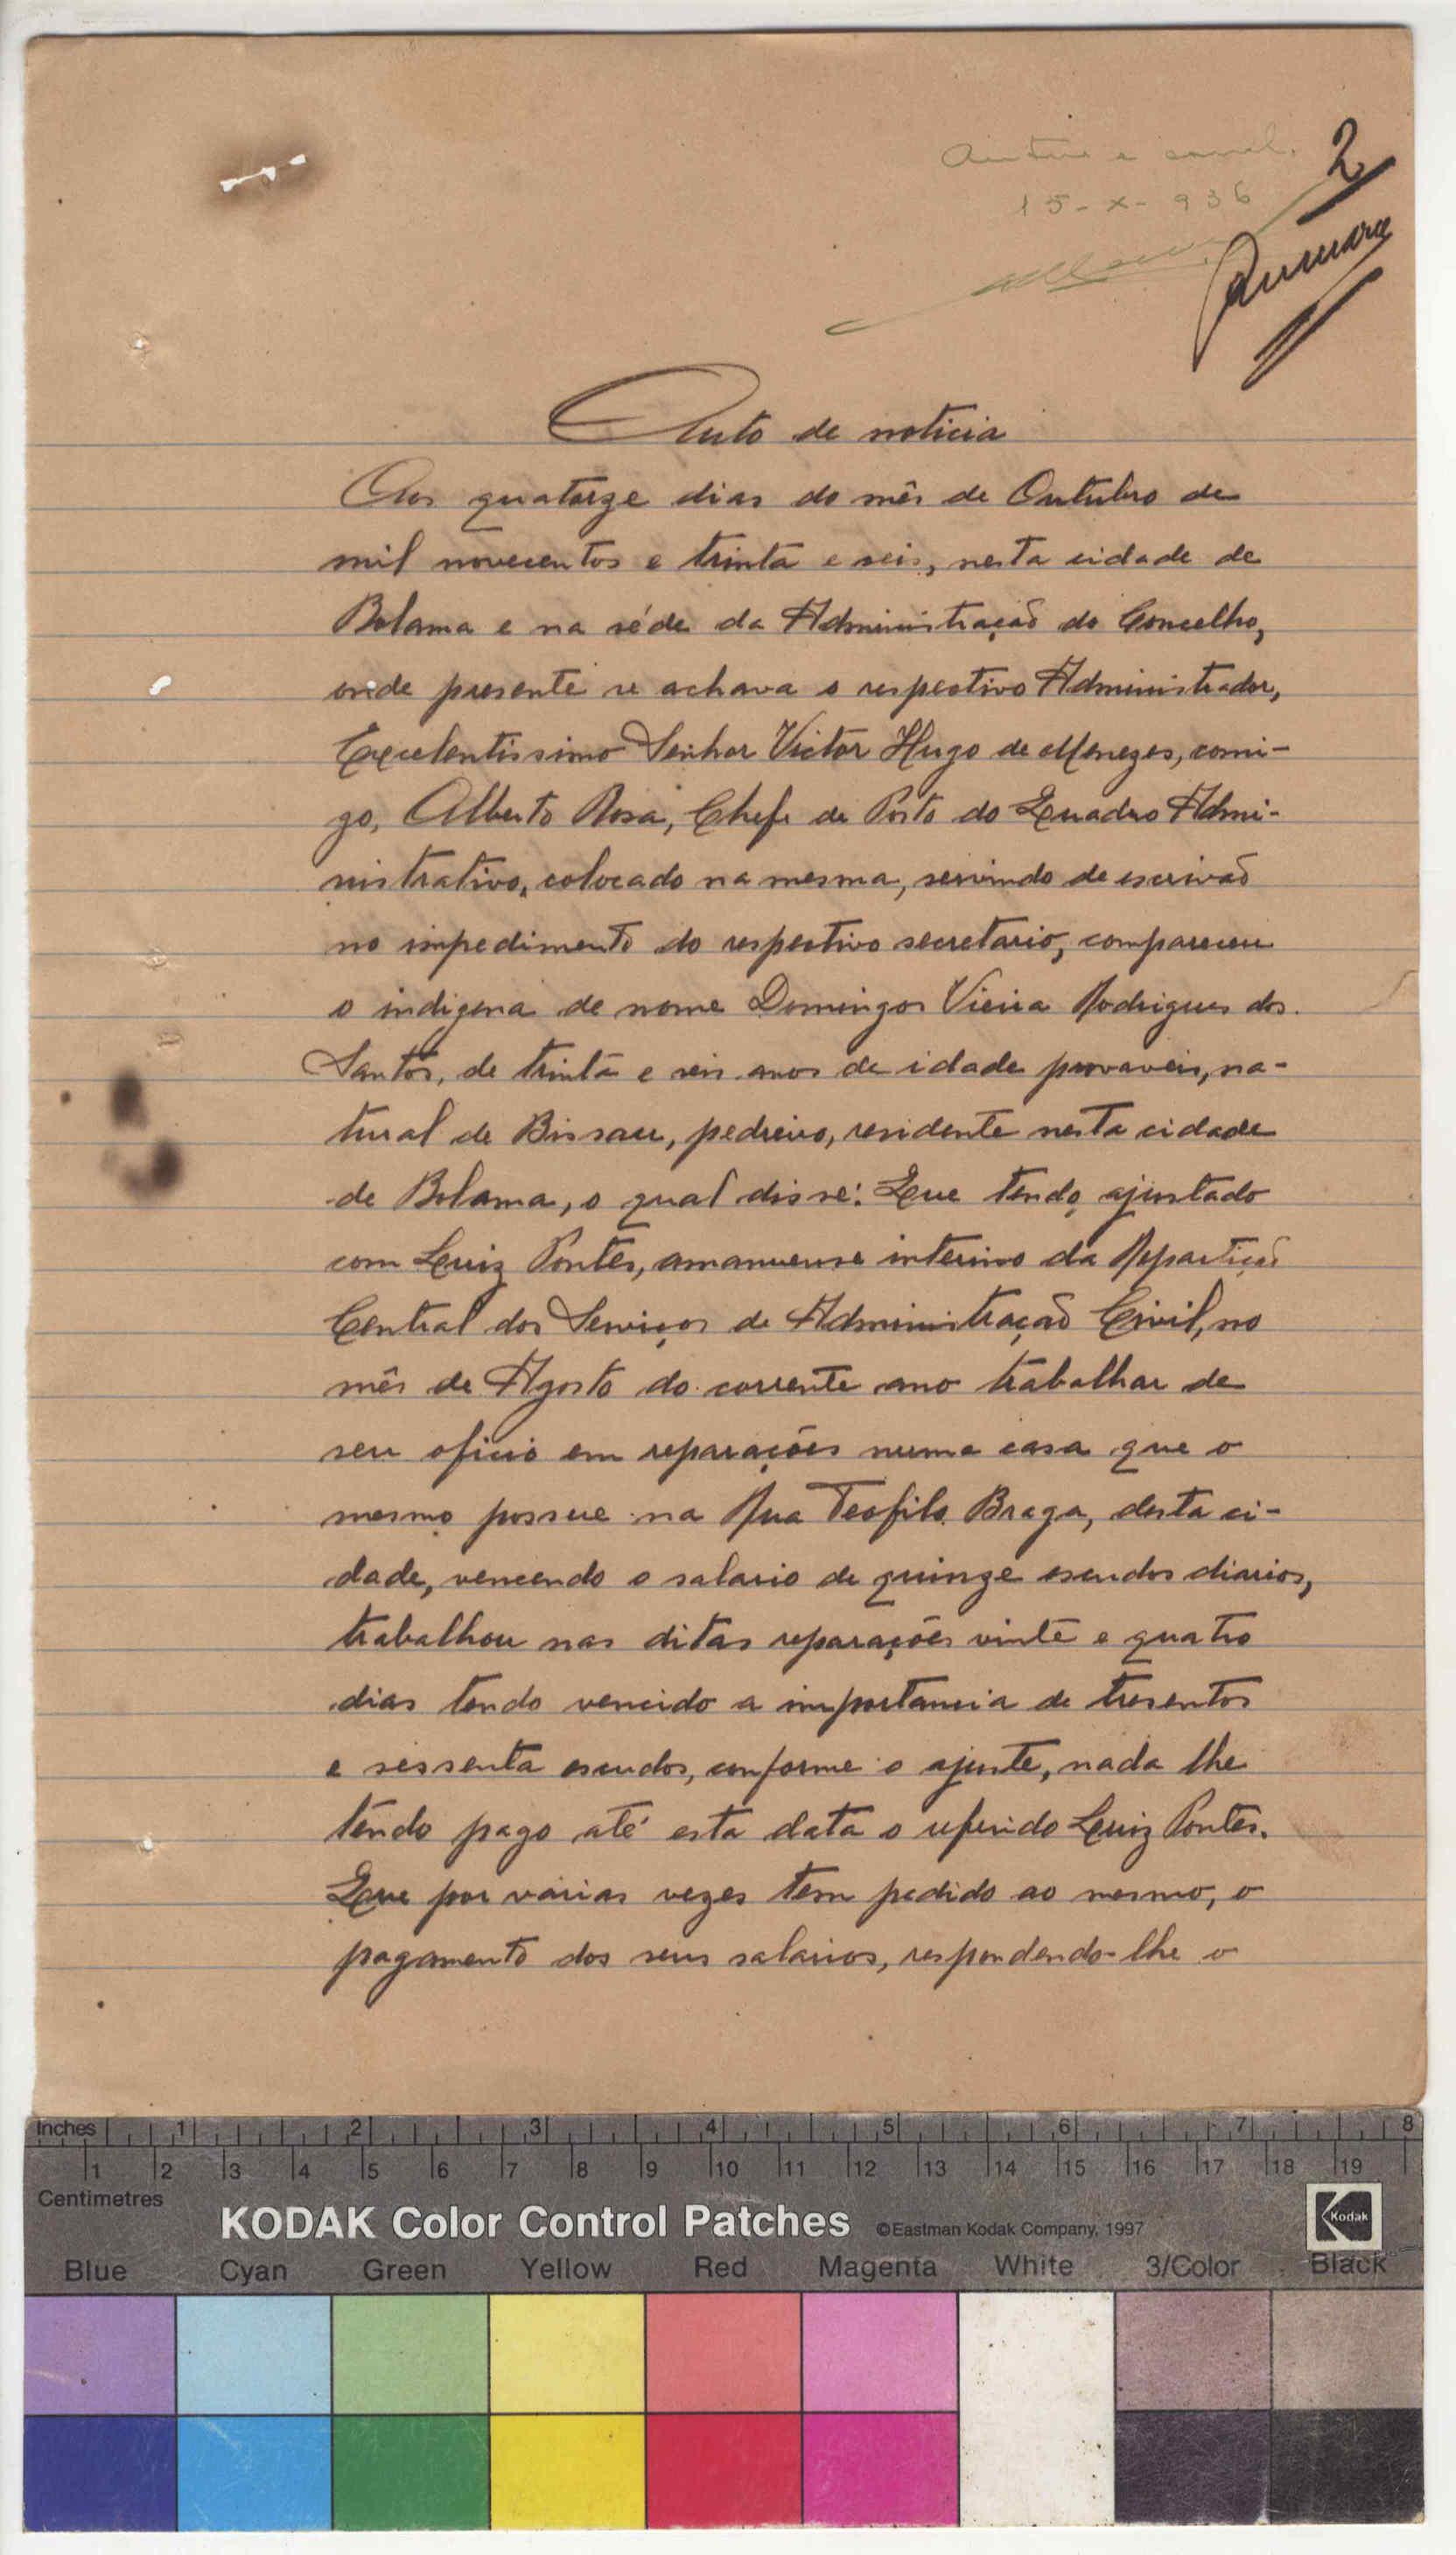 2
15-X-936
Auto de noticia
Aos quatorze dias do mês de Outubro de
mil novecentos e trinta e seis, nesta cidade de
Bolama e na séde da Administração do Concelho,
onde presente se achava o respectivo Administrador,
Excelentissimo Senhor Victor Hugo de Menezes, comi-
go, Alberto Rosa, Chefe de Posto do Quadro Admi-
nistrativo, colocado na mesma, servindo de escrivão
no impedimento do respectivo secretario, compareceu
o indigena de nome Domingos Vieira Rodrigues dos
Santos, de trinta e seis anos de idade provaveis, na-
tural de Bissau, pedreiro, residente nesta cidade
de Bolama, o qual disse: Que tendo ajustado
com Luiz Pontes, amanuense interino da Repartição
Central dos Serviços de Administração Civil, no
mês de Agosto do corrente ano trabalhar de
seu oficio em reparações numa casa que o
mesmo possue na Rua Teofilo Braga, desta ci-
dade, vencendo o salario de quinze escudos diarios,
trabalhou nas ditas reparações vinte e quatro
dias tendo vencido a importancia de tresentos
e sessenta escudos, conforme o ajuste, nada lhe
tendo pago até esta data o referido Luiz Pontes.
Que por várias vezes tem pedido ao mesmo, o
pagamento dos seus salarios, respondendo-lhe o
Inches 1 2 3 4 5 6 7 8
1 2 3 4 5 6 7 8 9 10 11 12 13 14 15 16 17 18 19
Centimetres
KODAK Color Control Patches ©Eastman Kodak Company, 1997 Kodak
Blue Cyan Green Yellow Red Magenta White 3/Color Black